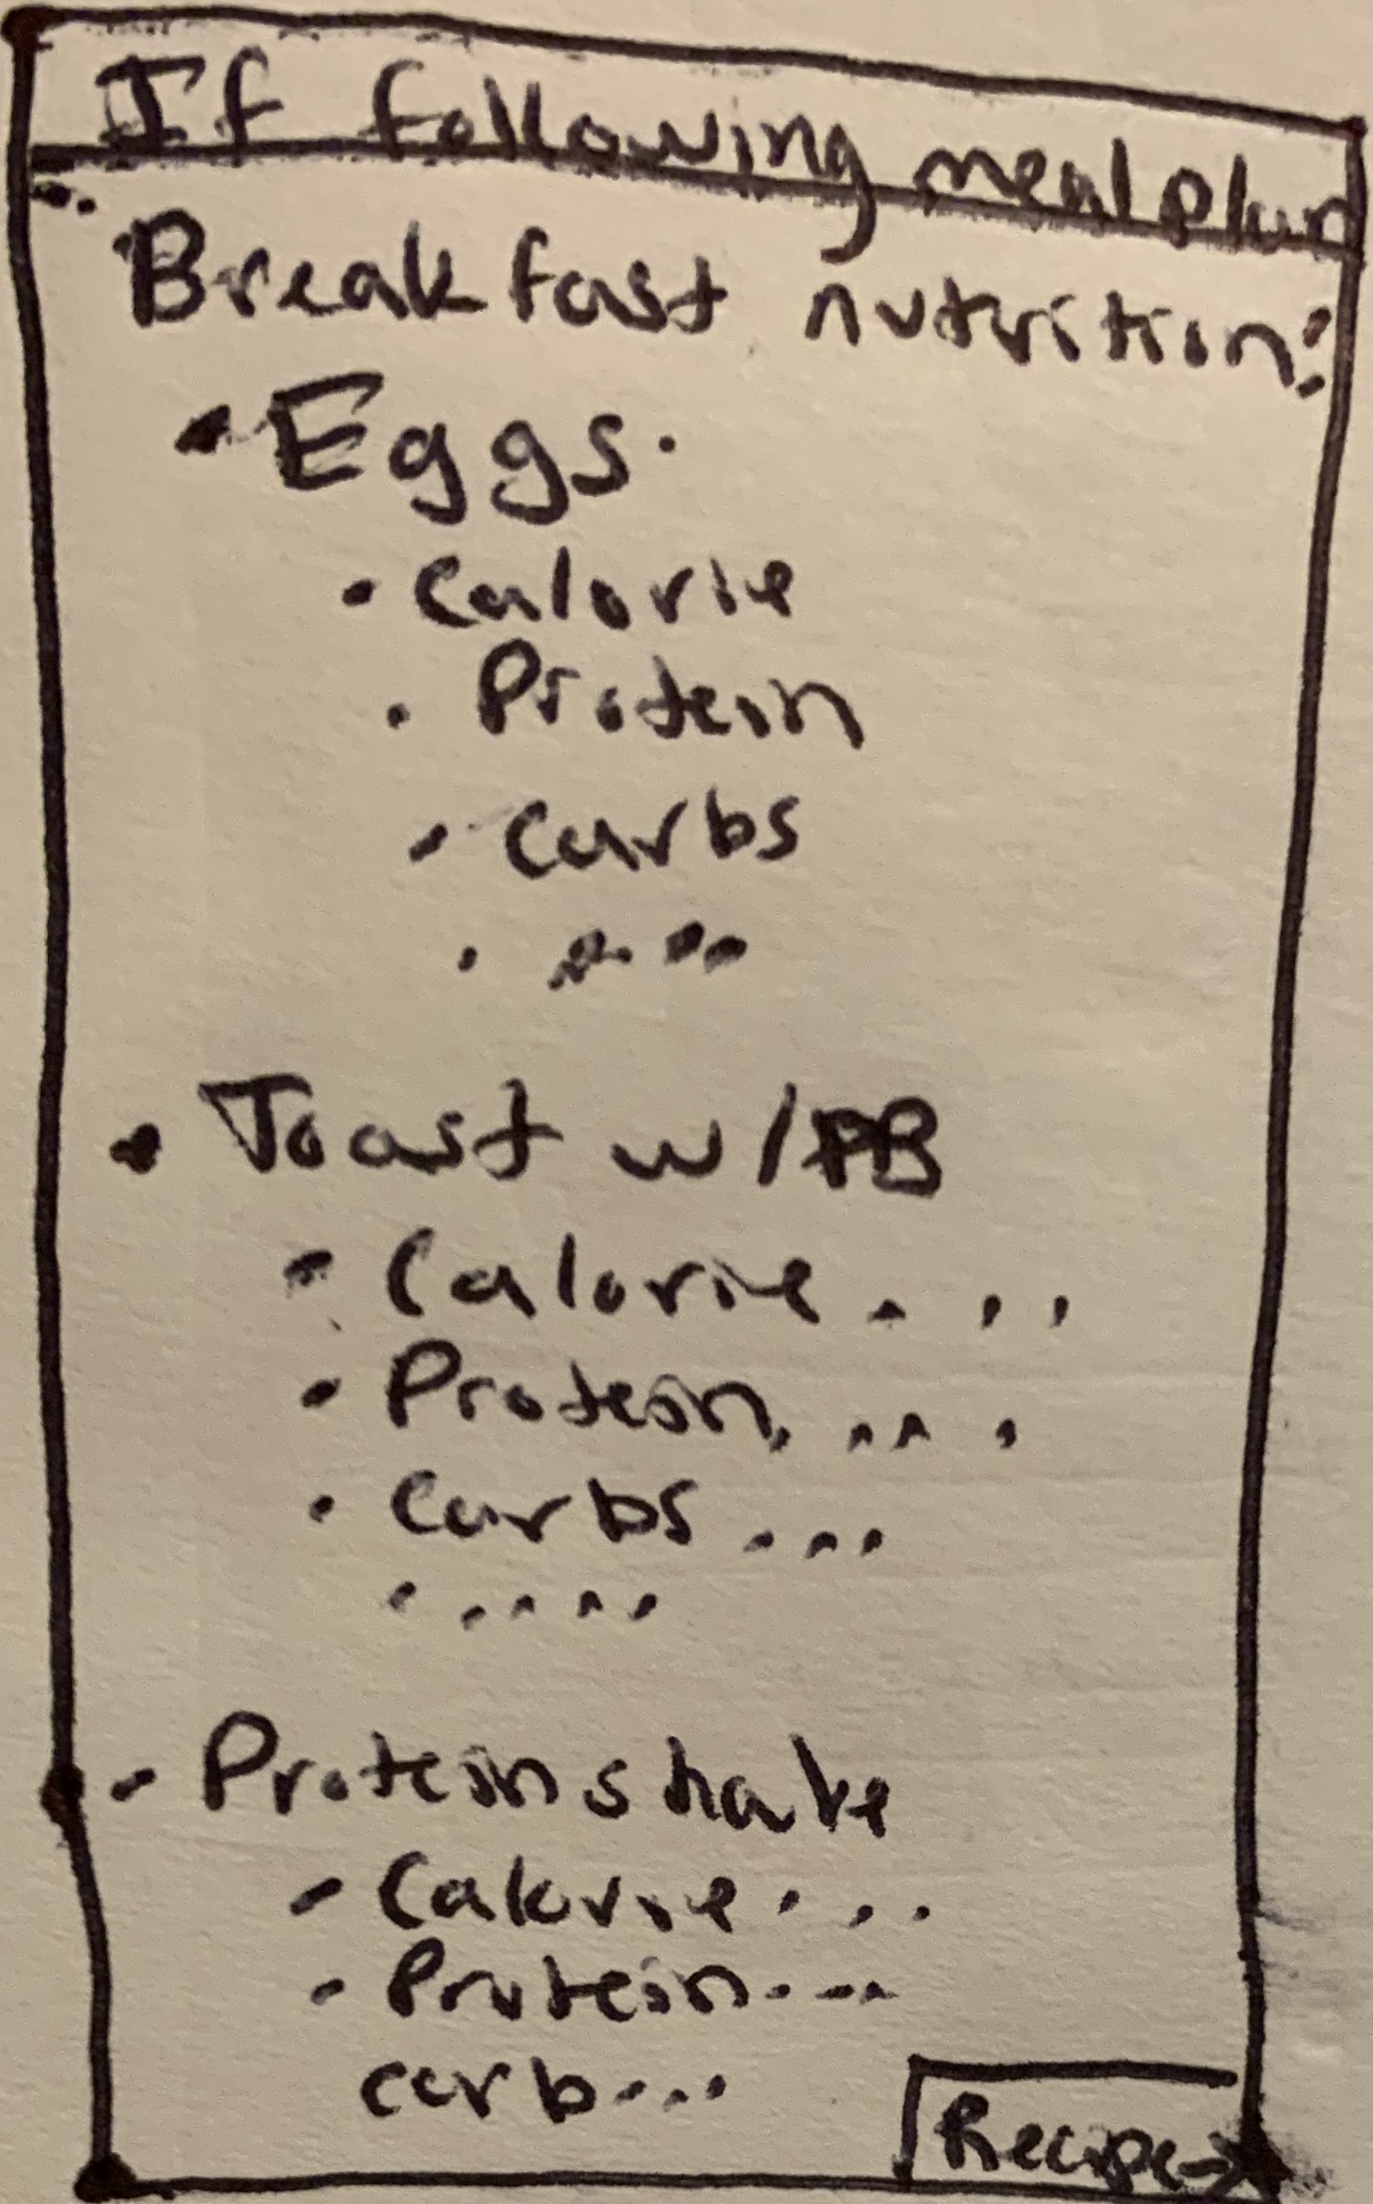 If following meal plan
Breakfast nutrition:
• Eggs.
• Calorie
• Protein
• Carbs
• ....
• Toast w/PB
• Calorie . . .
• Protein. ...
• Carbs ...
• ....
- Protein shake
- Calorie ...
- Protein...
carb...
Recipe→